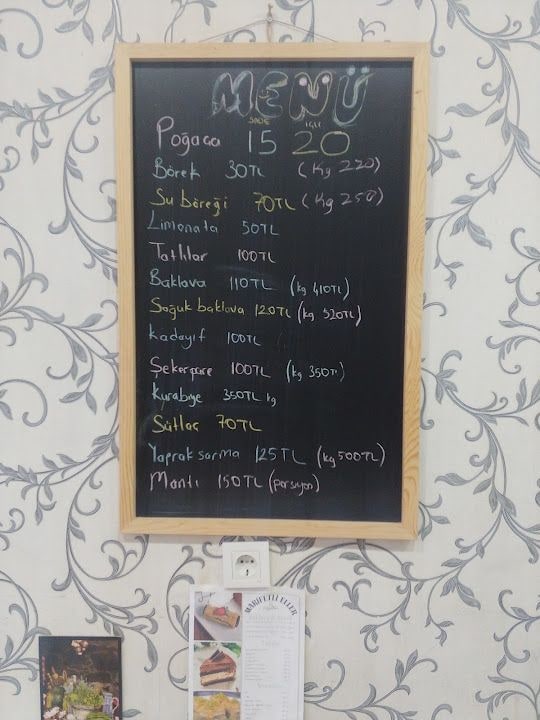 MENÜ
SADE İÇLİ
Poğaca 15 20
Börek 30TL (Kg 220)
Su böreği 70TL (Kg 250)
Limonata 50TL
Tatlılar 100TL
Baklava 110TL (kg 410TL)
Soğuk baklava 120TL (kg 520TL)
kadayıf 100TL
Şekerpare 100TL (kg 350TL)
Kurabiye 350TL kg
Sütlaç 70TL
Yaprak sarma 125TL (kg 500TL)
Mantı 150TL (porsiyon)
MARİFETLİ ELLER